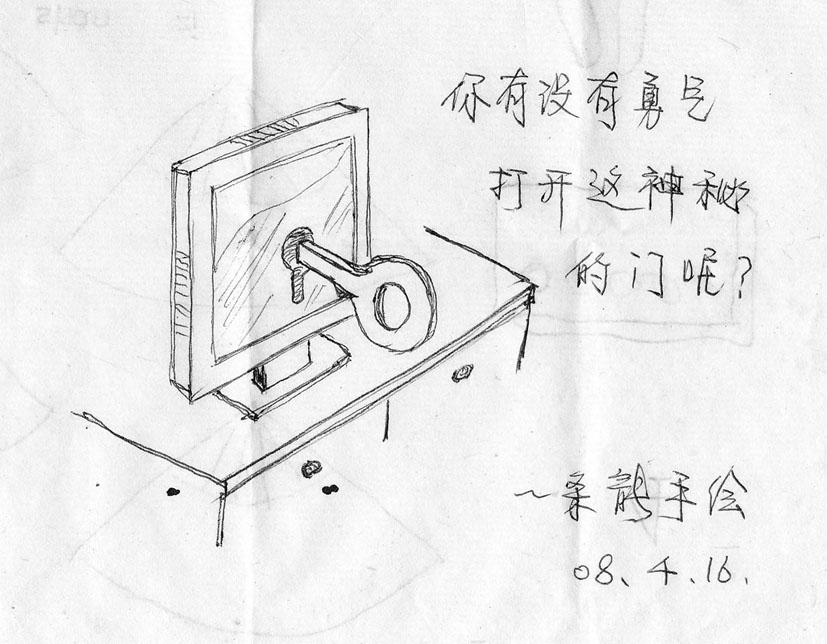 你有没有勇气
打开这神秘
的门呢?
手绘
08.4.16.